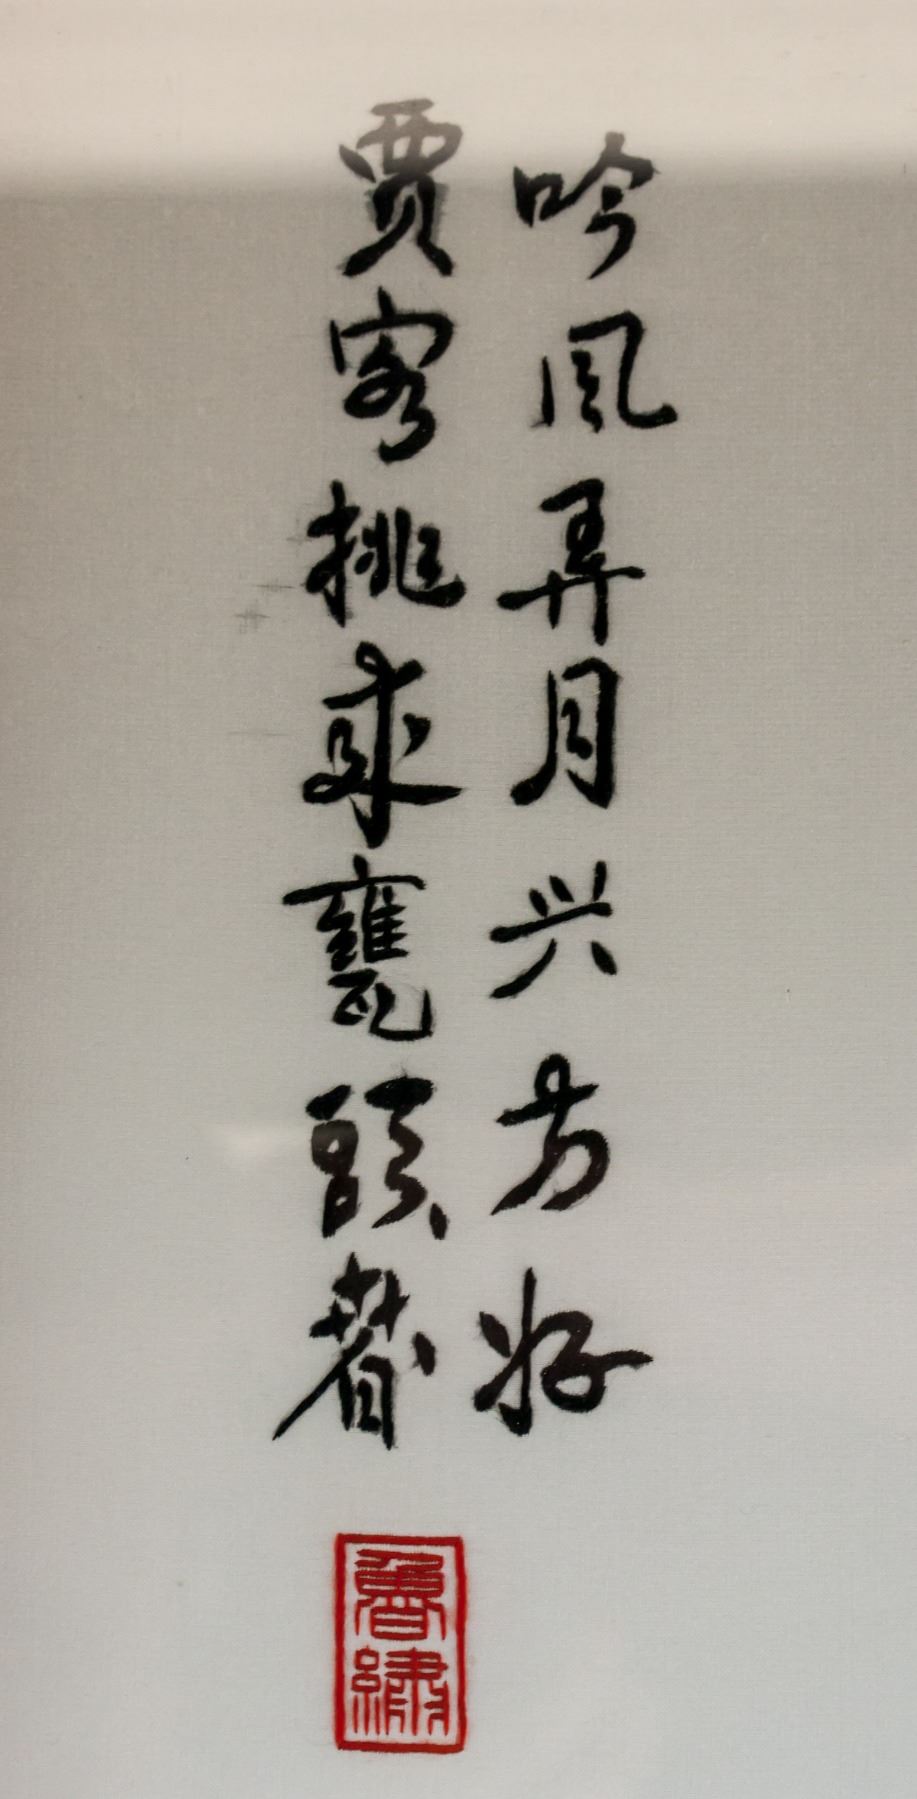 吟风弄月兴方好
贾客挑来甕頭春
魯繡